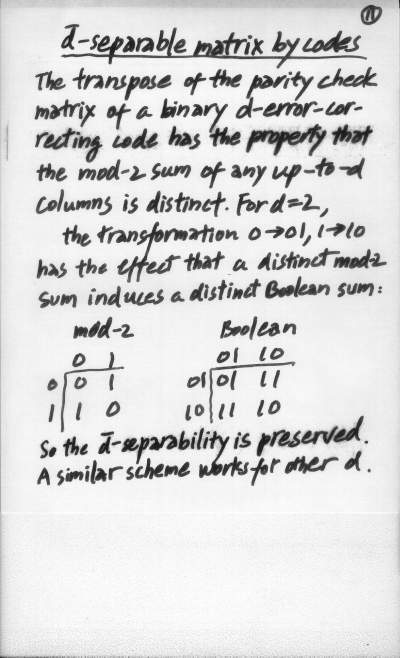 11
d̄-separable matrix by codes
The transpose of the parity check
matrix of a binary d-error-cor-
recting code has the property that
the mod-2 sum of any up-to-d
columns is distinct. For d=2,
the transformation 0→01, 1→10
has the effect that a distinct mod-2
sum induces a distinct Boolean sum:
mod-2 Boolean
0 1 01 10
0 0 1 01 01 11
1 1 0 10 11 10
So the d̄-separability is preserved.
A similar scheme works for other d.